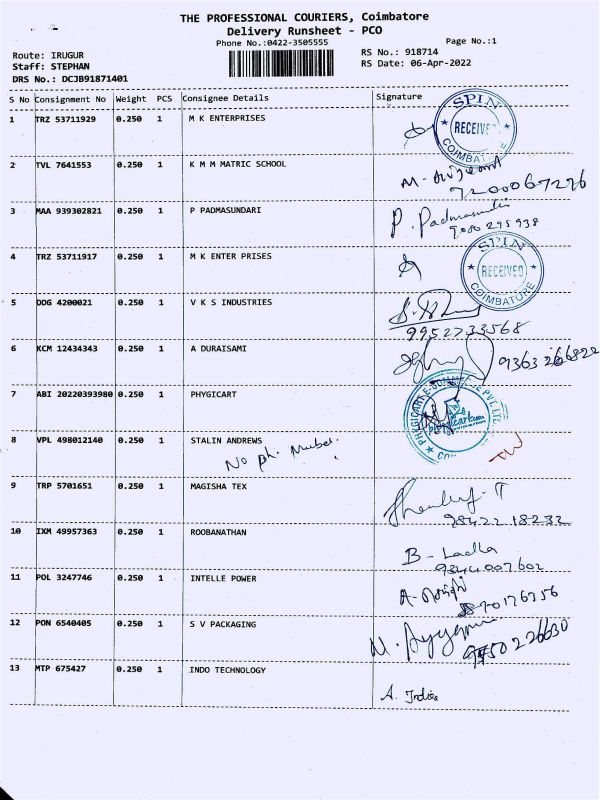 THE PROFESSIONAL COURIERS, Coimbatore
Delivery Runsheet - PCO
Phone No.:0422-3505555
Page No.:1
Route: IRUGUR
RS No.: 918714
Staff: STEPHAN
RS Date: 06-Apr-2022
DRS No.: DCJB91871401
S No Consignment No Weight PCS Consignee Details Signature
1 TRZ 53711929 0.250 1 M K ENTERPRISES
SPIN RECEIVED COIMBATORE
2 TVL 7641553 0.250 1 K M M MATRIC SCHOOL
M.
3 MAA 939302821 0.250 1 P PADMASUNDARI P. Padmasundari
9080295938
4 TRZ 53711917 0.250 1 M K ENTER PRISES
SPIN RECEIVED COIMBATORE
5 DDG 4200021 0.250 1 V K S INDUSTRIES
9952733568
6 KCM 12434343 0.250 1 A DURAISAMI
7 ABI 20220393980 0.250 1 PHYGICART
8 VPL 498012140 0.250 1 STALIN ANDREWS
No ph. Number.
9 TRP 5701651 0.250 1 MAGISHA TEX
98422 18232
10 IXM 49957363 0.250 1 ROOBANATHAN
B-
9344007602
11 POL 3247746 0.250 1 INTELLE POWER
A-
12 PON 6540405 0.250 1 S V PACKAGING
M.
13 MTP 675427 0.250 1 INDO TECHNOLOGY
A.